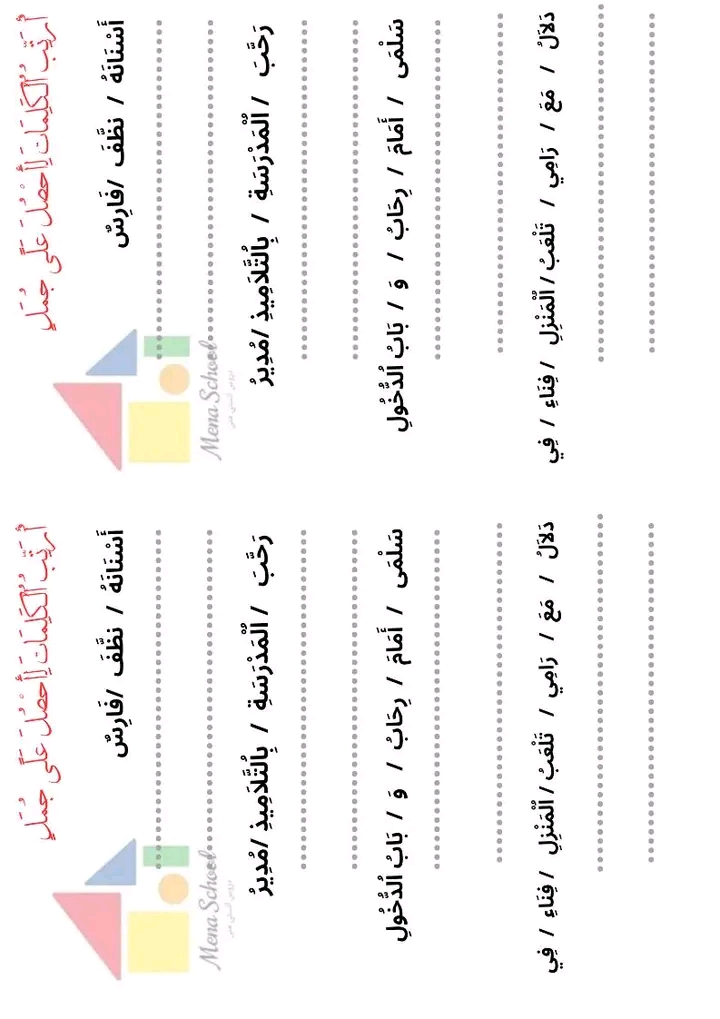 أُرَتِّبُ الْكَلِمَاتِ لِأَحْصُلَ عَلَى جُمَلٍ
أَسْنَانَهُ / نَظَّفَ /فَارِسٌ
رَحَّبَ / الْمَدْرَسَةِ / بِالتَّلَامِيذِ /مُدِيرُ
سَلْمَى / أَمَامَ / رِحَابُ / وَ / بَابُ الدُّخُولِ
دَلَالُ / مَعَ / رَامِي / تَلْعَبُ / الْمَنْزِلِ / فِنَاءِ / فِي
Mena School
أُرَتِّبُ الْكَلِمَاتِ لِأَحْصُلَ عَلَى جُمَلٍ
أَسْنَانَهُ / نَظَّفَ /فَارِسٌ
رَحَّبَ / الْمَدْرَسَةِ / بِالتَّلَامِيذِ /مُدِيرُ
سَلْمَى / أَمَامَ / رِحَابُ / وَ / بَابُ الدُّخُولِ
دَلَالُ / مَعَ / رَامِي / تَلْعَبُ / الْمَنْزِلِ / فِنَاءِ / فِي
Mena School